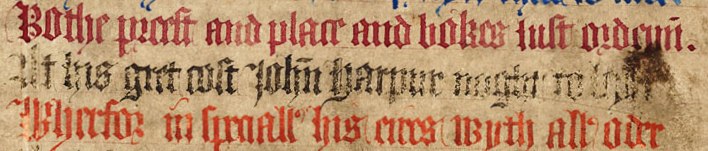 Bothe preest and place and bokes iust ordeyn̄.
At his gret cost John̄ Harpur noght to
Wherfor in speciall his eires wyth all oder